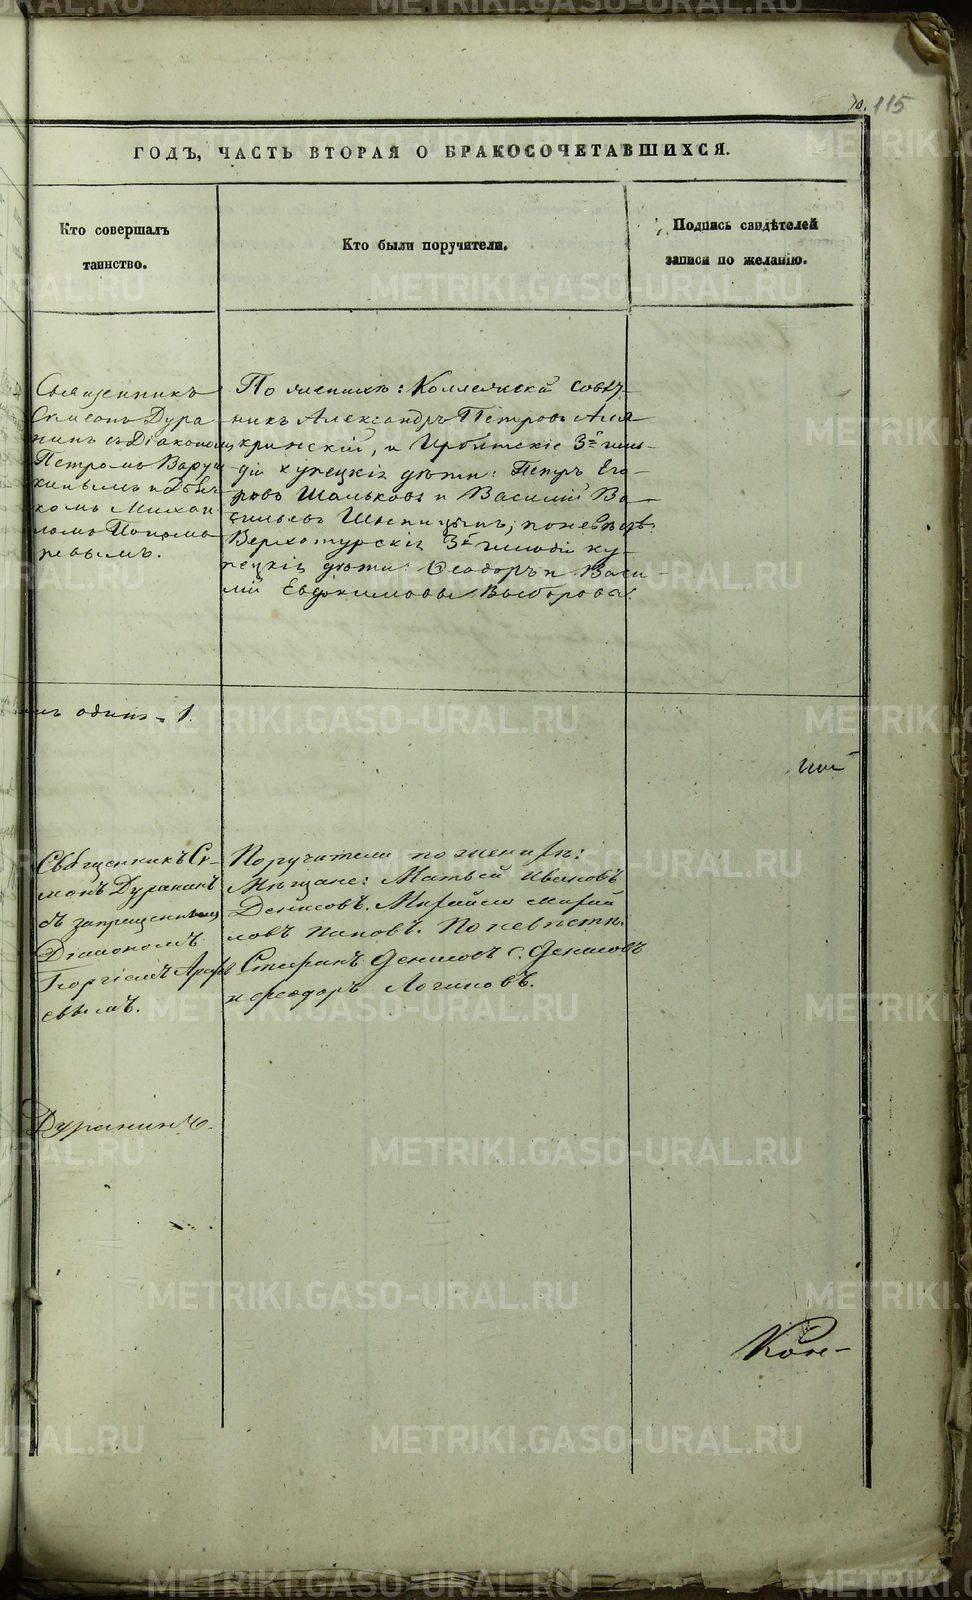 115
ГОДЪ, ЧАСТЬ ВТОРАЯ О БРАКОСОЧЕТАВШИХСЯ.
Кто совершалъ
таинство.
Кто были поручители.
Подпись свидѣтелей
записи по желанію.
Священникъ
Симеонъ Дура-
нинъ съ Діакономъ
Петромъ Вару
кинымъ и Дьяч
комъ Михаи
ломъ Попома
ревымъ.
По женихѣ: Коллежскій Совѣт-
никъ Александръ Петровъ Аля
кринскій, и Ирбитскіе 3й гиль-
діи купецкіе дѣти: Петръ Его-
ровъ Шальковъ и Василій Ва-
сильевъ Шипицынъ; по невѣстѣ
Верхотурскіе 3й гильдіи ку-
пецкіе дѣти: Ѳеодоръ и Васи-
лій Евфимовы Выборовы.
одинъ - 1.
Священникъ Си-
меонъ Дуранинъ
съ запрещеннымъ
Діакономъ
Георгіемъ Арефь
евымъ.
Поручители по женихѣ:
Мѣщане: Матвей Ивановъ
Денисовъ. Михайло Михай
ловъ Пановъ. По невѣстѣ.
Стефанъ Денисовъ Денисовъ
и Феодоръ Логиновъ.
Дуранинъ.
METRIKI.GASO-URAL.RU